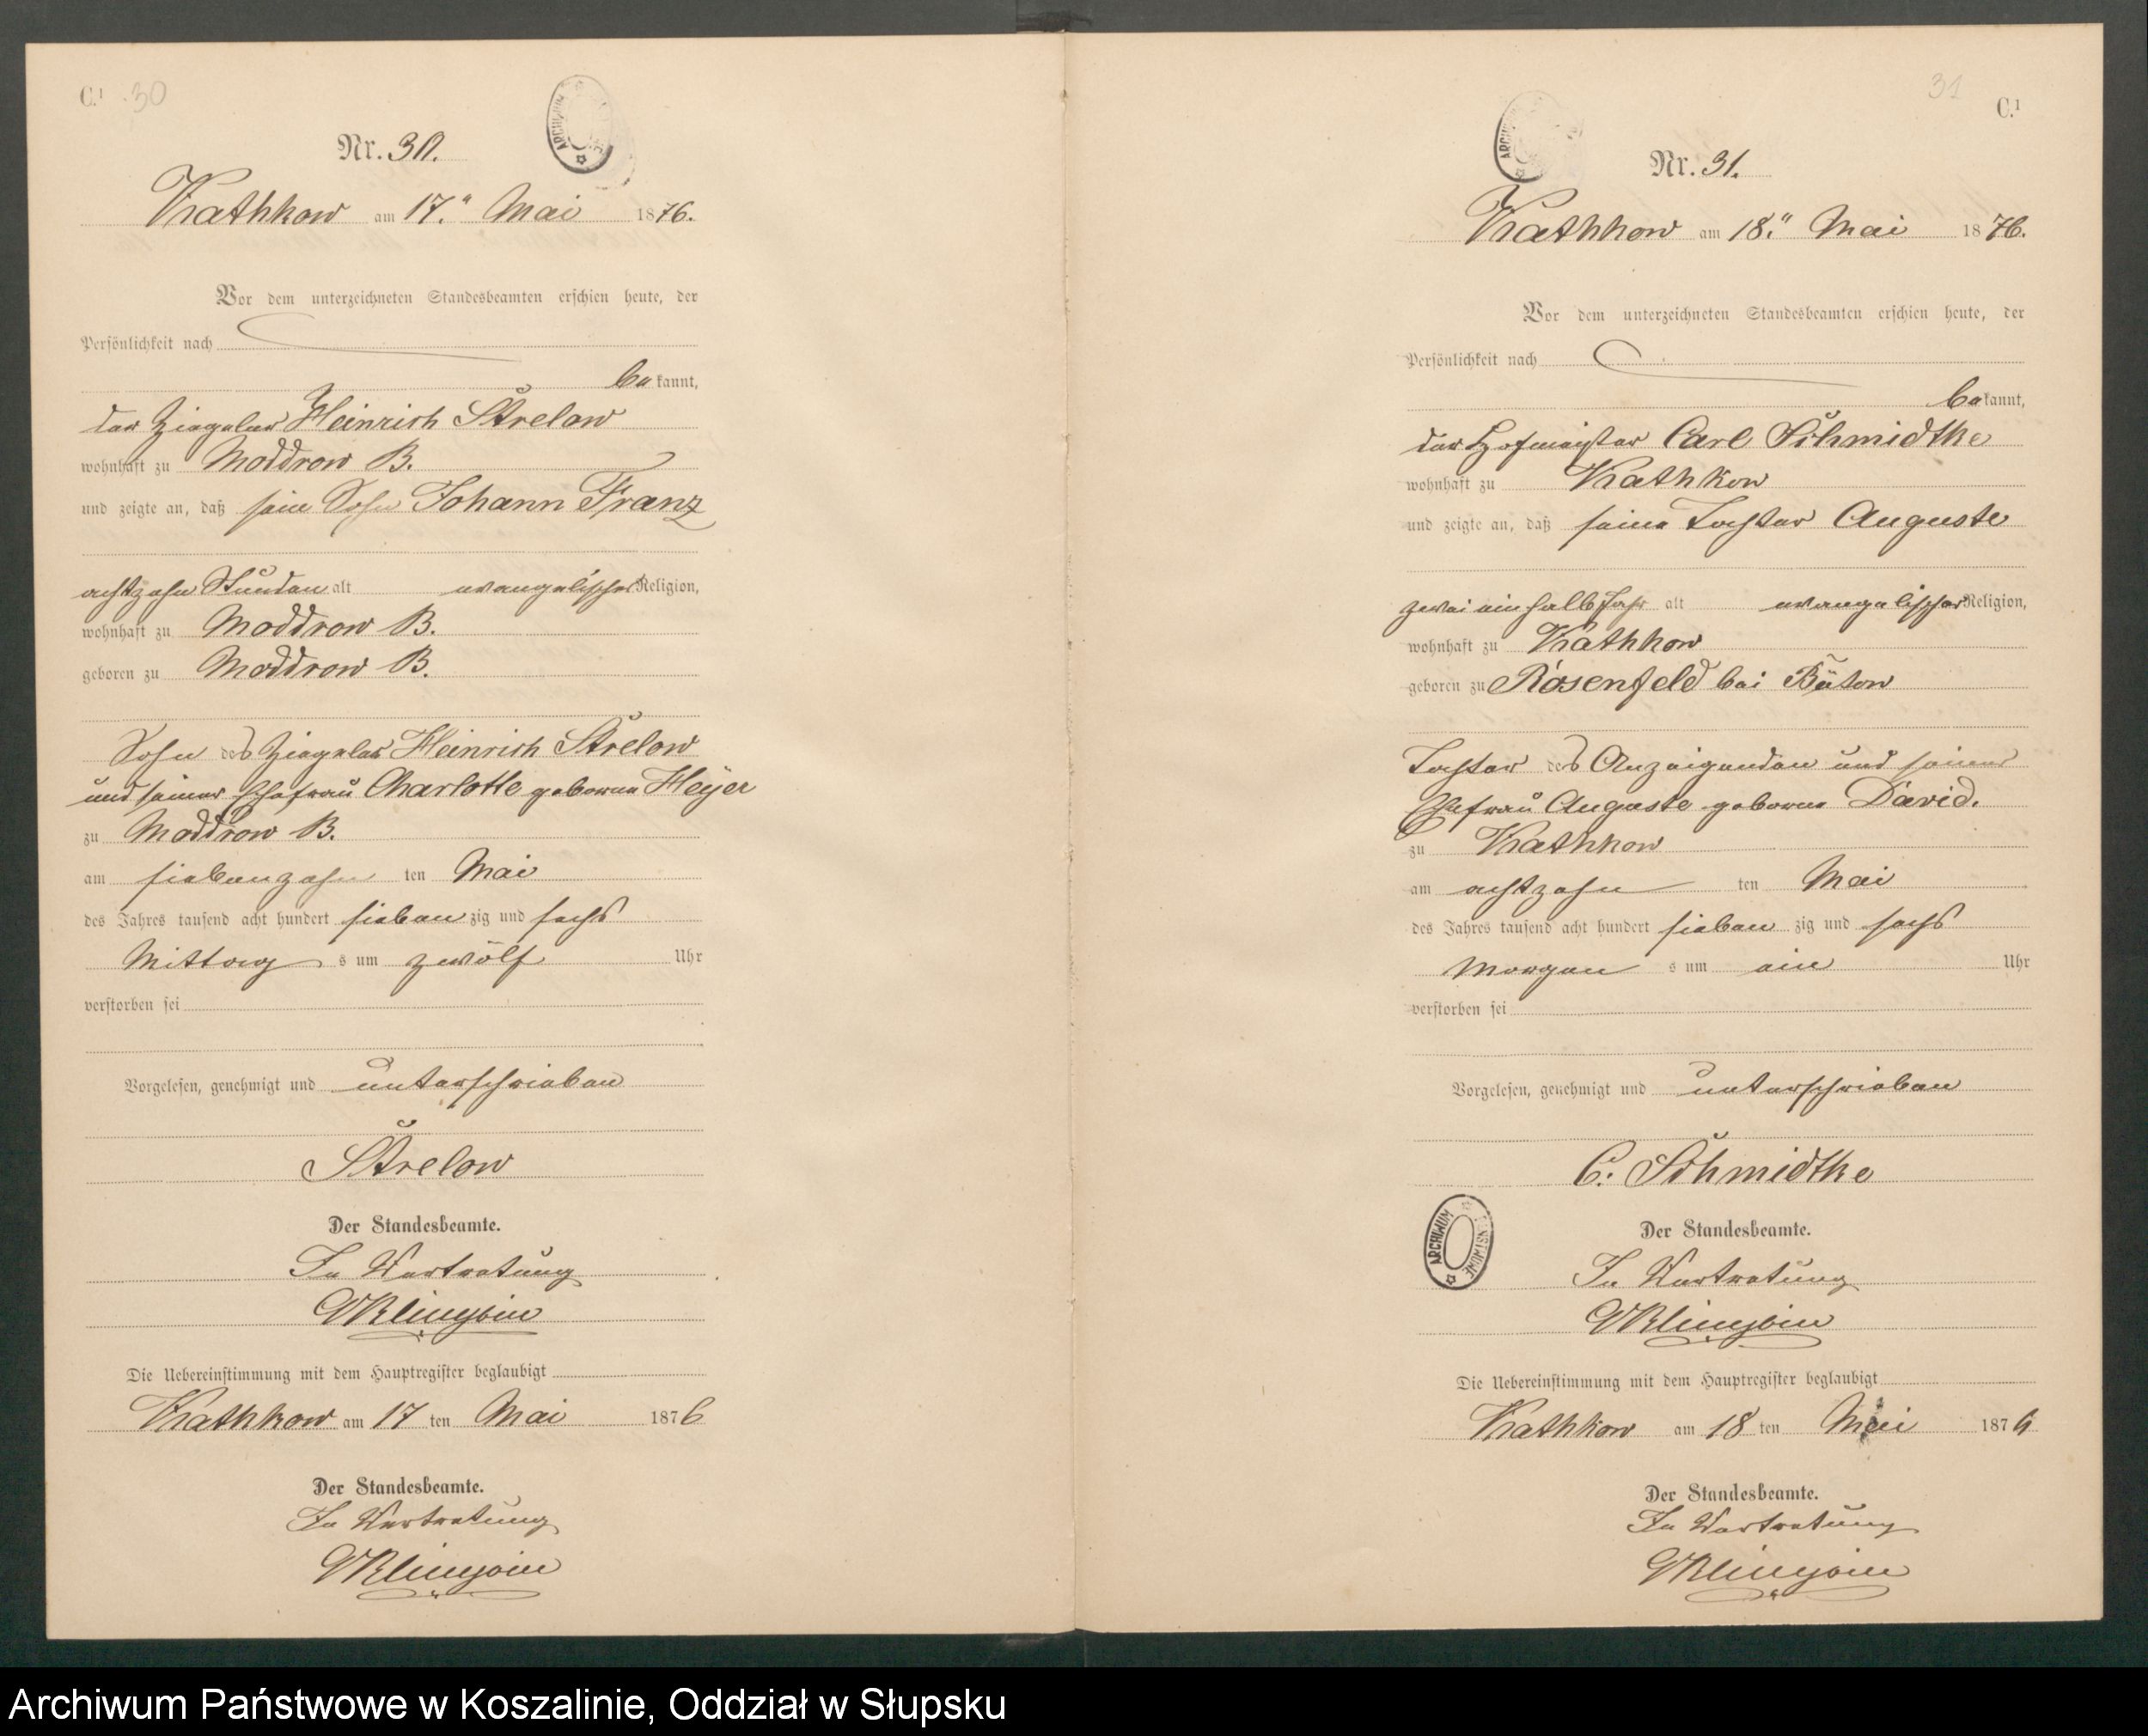 C.¹ 30
Nr. 30.
Krathkow am 17.ⁿ Mai 1876.
Vor dem unterzeichneten Standesbeamten erschien heute, der
Persönlichkeit nach
bekannt,
der Ziegeler Heinrich Strelow
wohnhaft zu Moddrow B.
und zeigte an, daß sein Sohn Johann Franz
achtzehn Stunden alt evangelischer Religion,
wohnhaft zu Moddrow B.
geboren zu Moddrow B.
Sohn des Ziegeler Heinrich Strelow
und seiner Ehefrau Charlotte geborene Heyer
zu Moddrow B.
am siebenzehn ten Mai
des Jahres tausend acht hundert sieben zig und sechs
Mittag s um zwölf Uhr
verstorben sei
Vorgelesen, genehmigt und unterschrieben
Strelow
Der Standesbeamte.
In Vertretung
Die Uebereinstimmung mit dem Hauptregister beglaubigt
Krathkow am 17 ten Mai 1876
Der Standesbeamte.
In Vertretung
31 C.¹
ARCHIWUM
Nr. 31.
Krathkow am 18.ⁿ Mai 1876.
Vor dem unterzeichneten Standesbeamten erschien heute, der
Persönlichkeit nach
bekannt,
der Hofmeister Carl Schmidtke
wohnhaft zu Krathkow
und zeigte an, daß seine Tochter Auguste
zwei ein halb Jahr alt evangelischer Religion,
wohnhaft zu Krathkow
geboren zu Rosenfeld bei Bütow
Tochter des Anzeigenden und seiner
Ehefrau Auguste geborne David.
zu Krathkow
am achtzehn ten Mai
des Jahres tausend acht hundert sieben zig und sechs
Morgen s um ein Uhr
verstorben sei
Vorgelesen, genehmigt und unterschrieben
C. Schmidtke
ARCHIWUM
Der Standesbeamte.
In Vertretung
Die Uebereinstimmung mit dem Hauptregister beglaubigt
Krathkow am 18 ten Mai 1876
Der Standesbeamte.
In Vertretung
Archiwum Państwowe w Koszalinie, Oddział w Słupsku